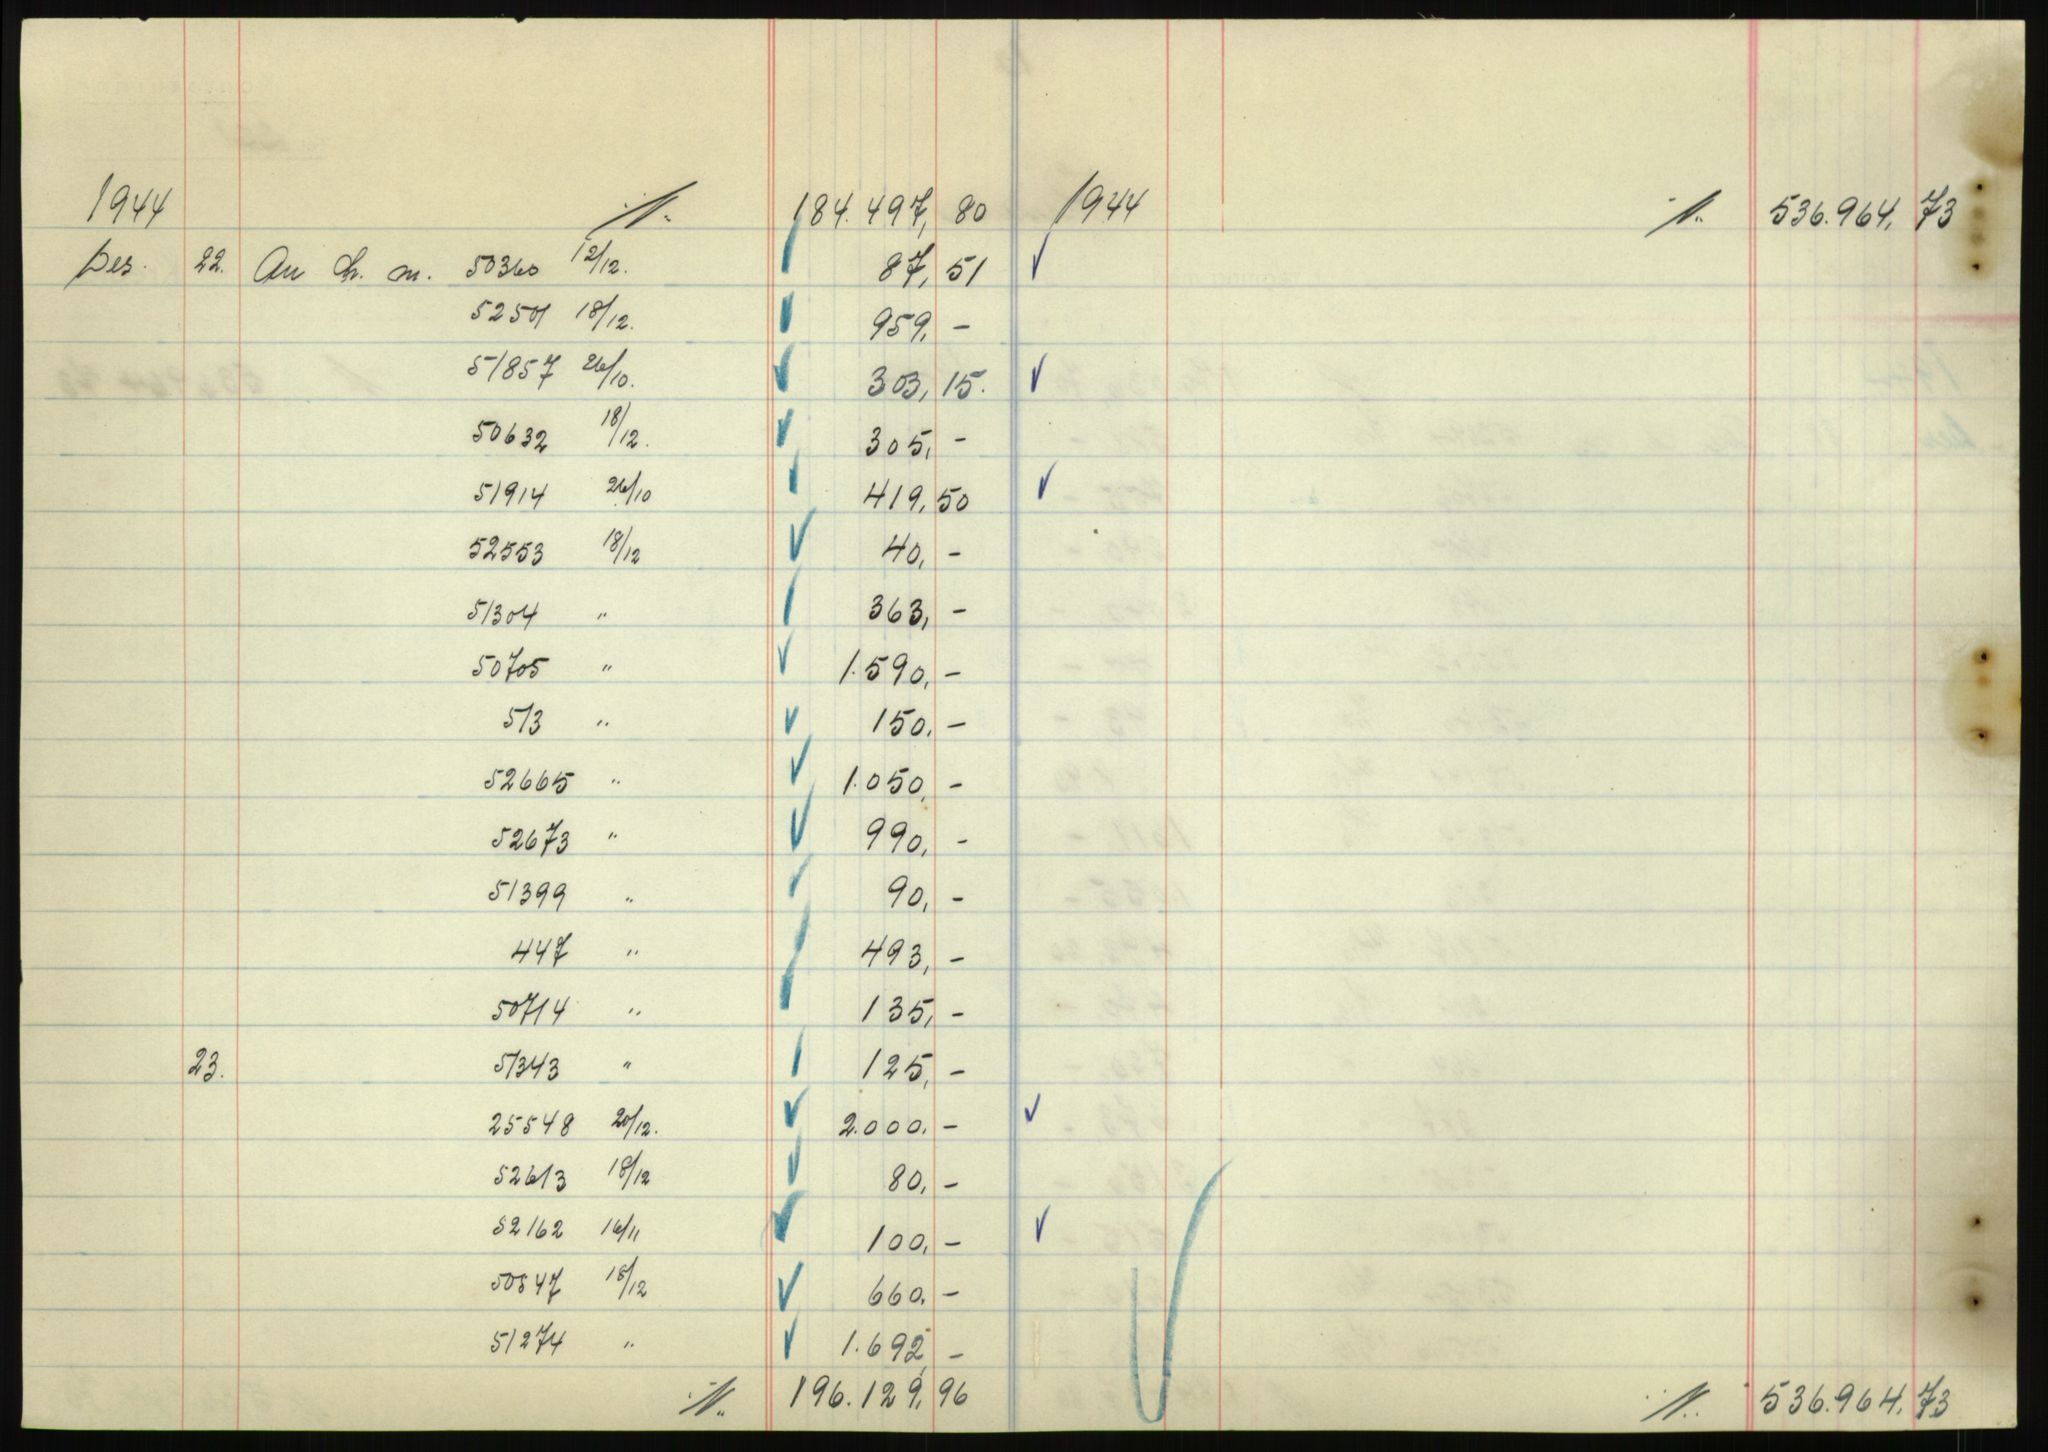 1944 ·/.. 184.497, 80 1944 ·/.. 536.964, 73
Des. 22. An Ch. m. 50360 12/12. 87, 51
52501 18/12. 959, -
51857 26/10. 303, 15.
50632 18/12. 305, -
51914 26/10 419, 50
52553 18/12 40, -
51304 " 363, -
50705 " 1.590, -
513 " 150, -
52665 " 1.050, -
52673 " 990, -
51399 " 90, -
447 " 493, -
50714 " 135, -
23. 51343 " 125, -
25548 20/12. 2.000, -
52613 18/12 80, -
52162 16/11 100, -
50847 18/12 660, -
51274 " 1.692, -
·/.. 196.129, 96 ·/.. 536.964, 73